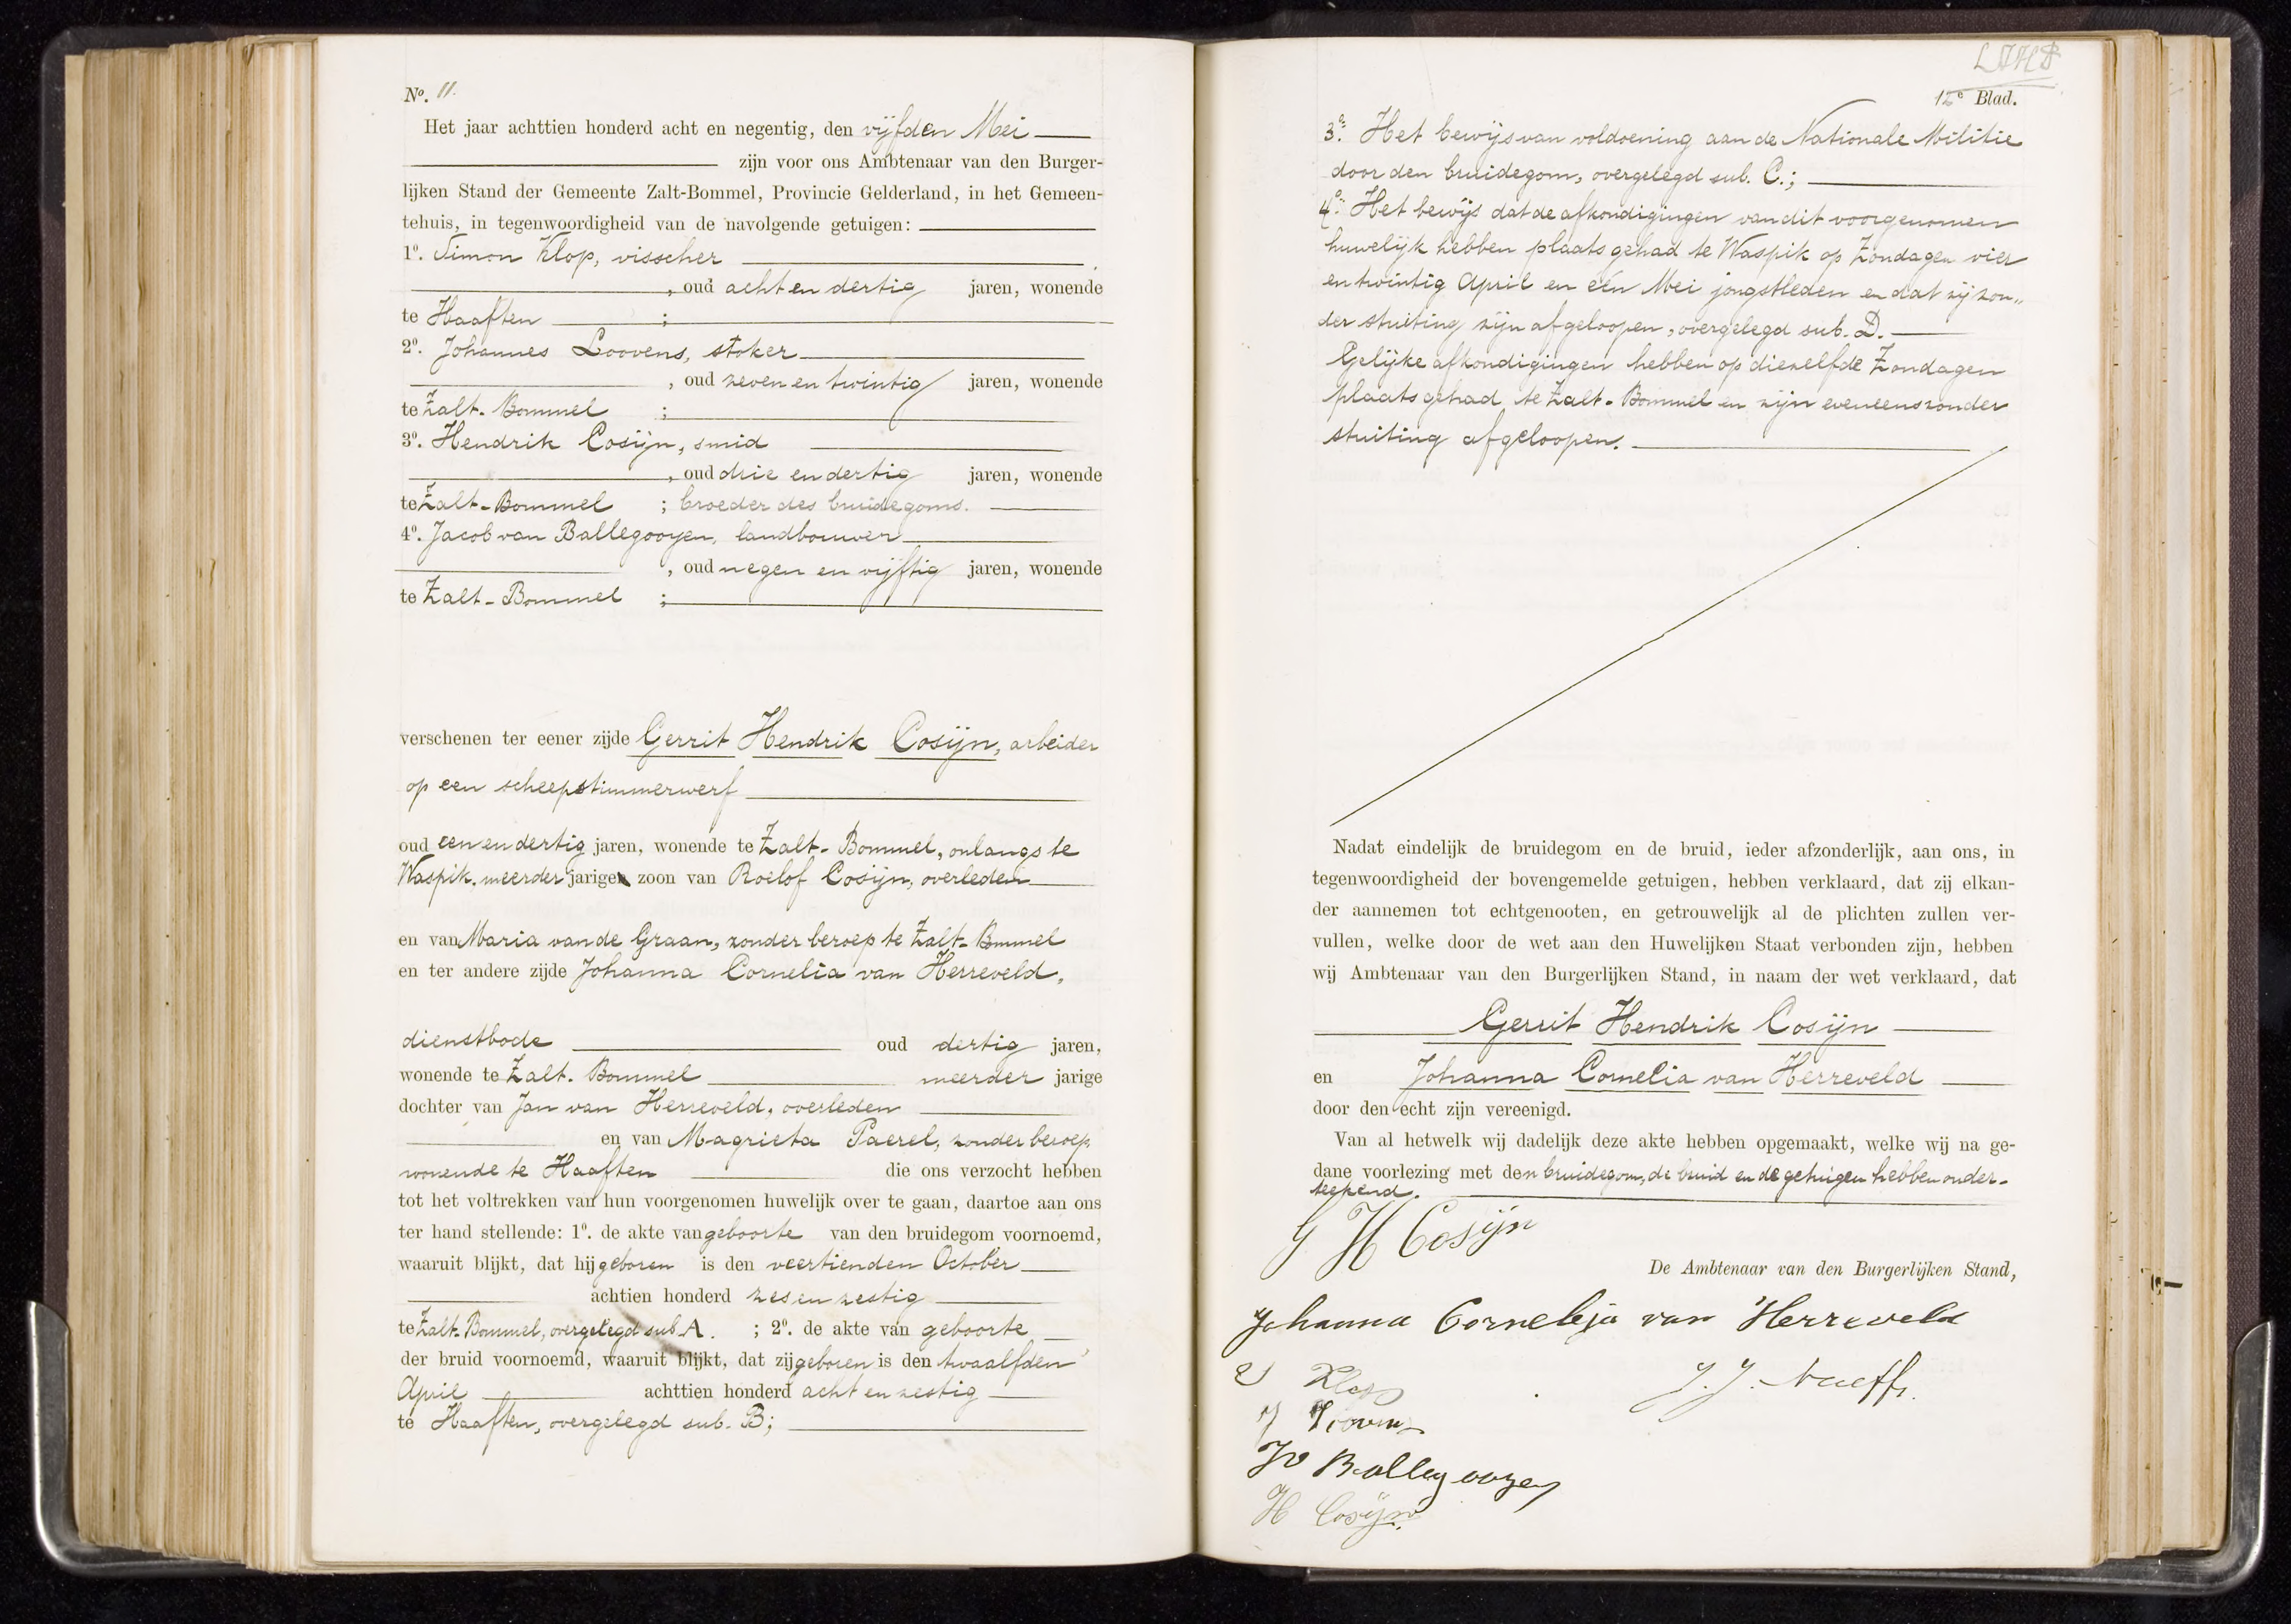 No. 11.
Het jaar achttien honderd acht en negentig, den vijfden Mei
zijn voor ons Ambtenaar van den Burger-
lijken Stand der Gemeente Zalt-Bommel, Provincie Gelderland, in het Gemeen-
tehuis, in tegenwoordigheid van de navolgende getuigen:
1o. Simon Klop, visscher
, oud acht en dertig jaren, wonende
te Haaften ;
2o. Johannes Loovens, stoker
, oud zeven en twintig jaren, wonende
te Zalt-Bommel ;
3o. Hendrik Cosijn, smid
, oud drie en dertig jaren, wonende
te Zalt-Bommel ; broeder des bruidegoms.
4o. Jacob van Ballegooyen, landbouwer
, oud negen en vijftig jaren, wonende
te Zalt-Bommel ;
verschenen ter eener zijde Gerrit Hendrik Cosijn, arbeider
op een scheepstimmerwerf
oud een en dertig jaren, wonende te Zalt-Bommel, onlangs te
Waspik, meerder jarige zoon van Roelof Cosijn, overleden
en van Maria van de Graan, zonder beroep te Zalt-Bommel
en ter andere zijde Johanna Cornelia van Herreveld,
dienstbode oud dertig jaren,
wonende te Zalt-Bommel meerder jarige
dochter van Jan van Herreveld, overleden
en van Magrieta Paerel, zonder beroep
wonende te Haaften die ons verzocht hebben
tot het voltrekken van hun voorgenomen huwelijk over te gaan, daartoe aan ons
ter hand stellende: 1o. de akte van geboorte van den bruidegom voornoemd,
waaruit blijkt, dat hij geboren is den veertienden October
achtien honderd zes en zestig
te Zalt-Bommel, overgelegd sub A. ; 2o. de akte van geboorte
der bruid voornoemd, waaruit blijkt, dat zij geboren is den twaalfden
April achttien honderd acht en zestig
te Haaften, overgelegd sub. B;
12e Blad.
3o. Het bewijs van voldoening aan de Nationale Militie
door den bruidegom, overgelegd sub. C.;
4o. Het bewijs dat de afkondigingen van dit voorgenomen
huwelijk hebben plaats gehad te Waspik op Zondagen vier
en twintig April en één Mei jongstleden en dat zij zon„
der stuiting zijn afgeloopen, overgelegd sub. D.
Gelijke afkondigingen hebben op diezelfde Zondagen
plaats gehad te Zalt-Bommel en zijn eveneens zonder
stuiting afgeloopen.
Nadat eindelijk de bruidegom en de bruid, ieder afzonderlijk, aan ons, in
tegenwoordigheid der bovengemelde getuigen, hebben verklaard, dat zij elkan-
der aannemen tot echtgenooten, en getrouwelijk al de plichten zullen ver-
vullen, welke door de wet aan den Huwelijken Staat verbonden zijn, hebben
wij Ambtenaar van den Burgerlijken Stand, in naam der wet verklaard, dat
Gerrit Hendrik Cosijn
en Johanna Cornelia van Herreveld
door den echt zijn vereenigd.
Van al hetwelk wij dadelijk deze akte hebben opgemaakt, welke wij na ge-
dane voorlezing met den bruidegom, de bruid en de getuigen hebben onder-
teekend.
G H Cosijn
De Ambtenaar van den Burgerlijken Stand,
Johanna Cornelija van Herreveld
Klop
J. J.
JV Ballegooyen
H Cosijn.